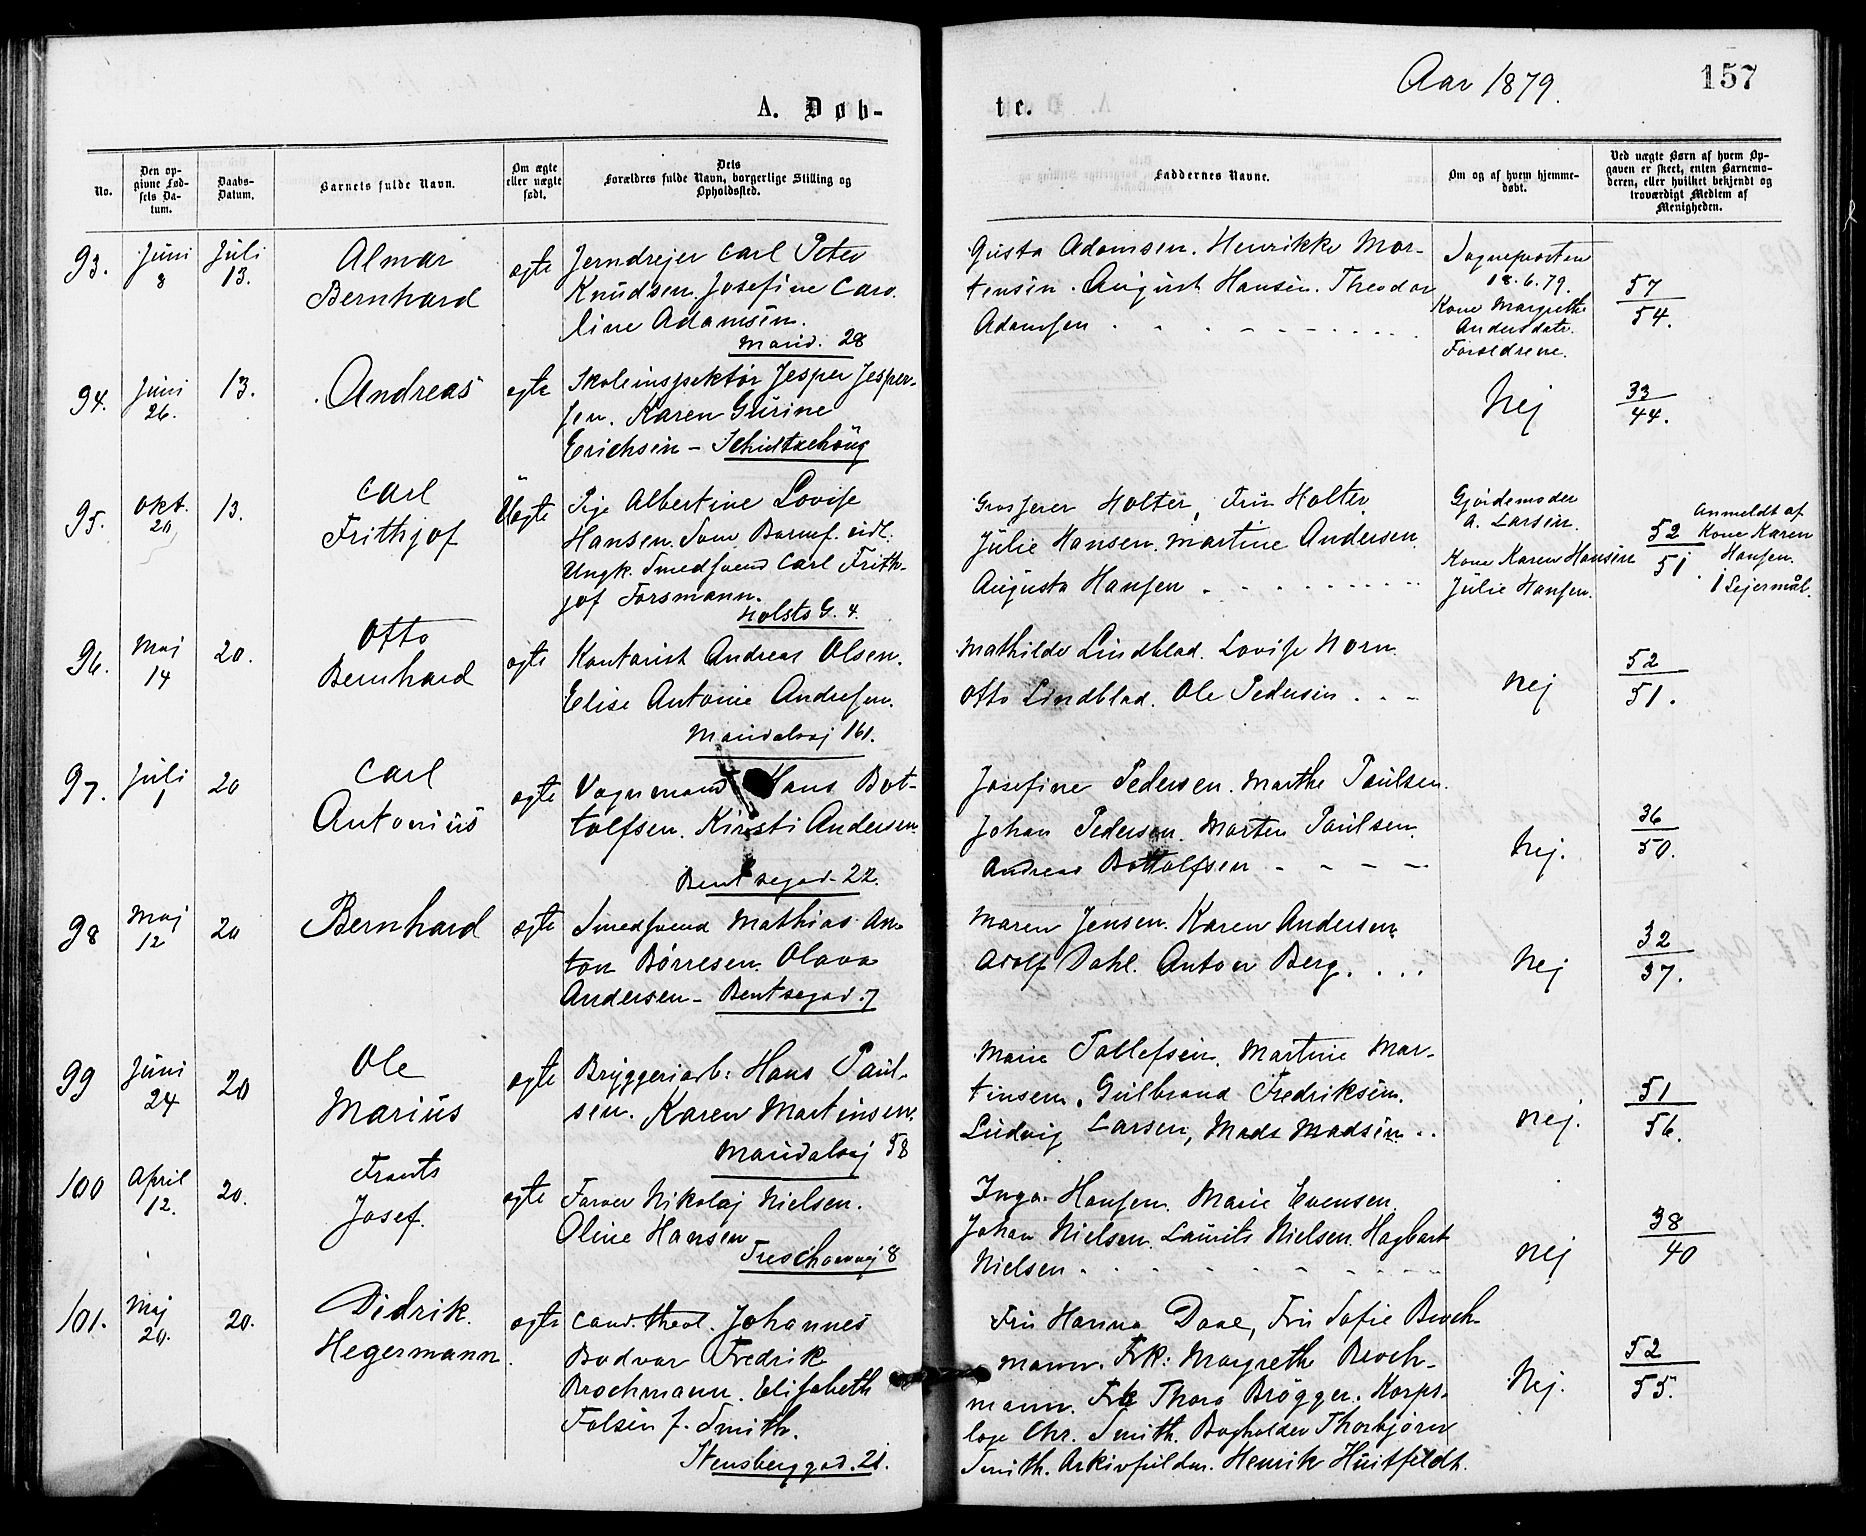 Aar 1879.
157
A. Døb-
te.
No.
Den opgivne Fødsels Datum.
Daabs-Datum.
Barnets fulde Navn.
Om ægte eller uægte født.
Dets Forældres fulde Navn, borgerlige Stilling og Opholdssted.
Faddernes Navne.
Om og af hvem hjemmedøbt.
Ved uægte Børn af hvem Opgaven er skeet, enten Barnemoderen, eller hvilket bekjendt og troværdigt Medlem af Menigheden.
93. Juni 8 Juli 13. Almar Bernhard ægte
Jerndrejer Carl Peter
Knudsen. Josefine Caro
line Adamsen.
Marid. 28
Gusta Adamsen. Henrikke Mor-
tensen. August Hansen. Theodor
Adamsen
Sognepresten
18.6.79.
Kone Margrethe
Andersdatr.
Forældrene.
57
54.
94. Juni 26. 13. Andreas ægte
Skoleinspektør Jesper Jesper-
sen. Karen Gurine
Erichsen -
Nej
33
44.
95. Okt. 20 13. Carl Frithjof Uægte
Pige Albertine Lovise
Hansen. Som Barnef. eidl.
Ungk. Smedsvend Carl Frith-
jof Forsmann.
Holsts G. 4.
Grosserer Holter, Fru Holter
Julie Hansen. Martine Andersen.
Augusta Hansen
Gjordemoder
A. Larsen.
Kone Karen Hansen
Julie Hansen.
52
51.
Anmeldt af
Kone Karen
Hansen.
1 Lejermål.
96. Maj 14 20. Otto Bernhard ægte
Kontorist Andreas Olsen.
Elise Antonie Andresen.
Maridalsvej 161.
Mathilde Lindblad. Lovise Horn
Otto Lindblad. Ole Pedersen
nej
52
51.
97. Juli 1 20 Carl Antonius ægte
Vognmand Hans Bot-
tolfsen. Kirsti Andersen
Bentsegad. 22.
Josefine Pedersen. Marthe Paulsen.
Johan Pedersen. Morten Paulsen.
Andreas Bottolfsen
Nej.
36
50.
98 Maj 12 20 Bernhard ægte
Smedsvend Mathias An-
ton Børresen. Olava
Andersen - Bentsegad. 7
Maren Jensen. Karen Andersen
Adolf Dahl. Anton Berg.
Nej
32
37.
99 Juni 24 20 Ole Marius ægte
Bryggeriarb: Hans Paul-
sen. Karen Martinsen.
Maridalsvej 58
Marie Tollefsen. Martine Mar-
tinsen. Gulbrand Fredriksen.
Ludvig Larsen, Mads Madsen
nej.
51
56.
100 April 12. 20. Frants Josef. ægte
Farver Nikolaj Nielsen.
Oline Hansen
Treschowvej 8
Inga Hansen. Marie Evensen
Johan Nielsen. Laurits Nielsen. Hagbart
Nielsen
nej
38
40
101. Maj 20. 20. Didrik Hegermann. ægte
Cand. theol. Johannes
Bodvar Fredrik
Brochmann. Elisabeth
Falsen f. Smith.
Stensberggad. 21.
Fru Hanna Daae, Fru Sofie Broch-
mann. Frk: Margrethe Broch-
mann. Frk Thora Brøgger. Korps-
læge Chr. Smith. Bogholder Thorbjørn
Smith. Arkivfuldm. Henrik Huitfeldt.
Nej.
52
55.